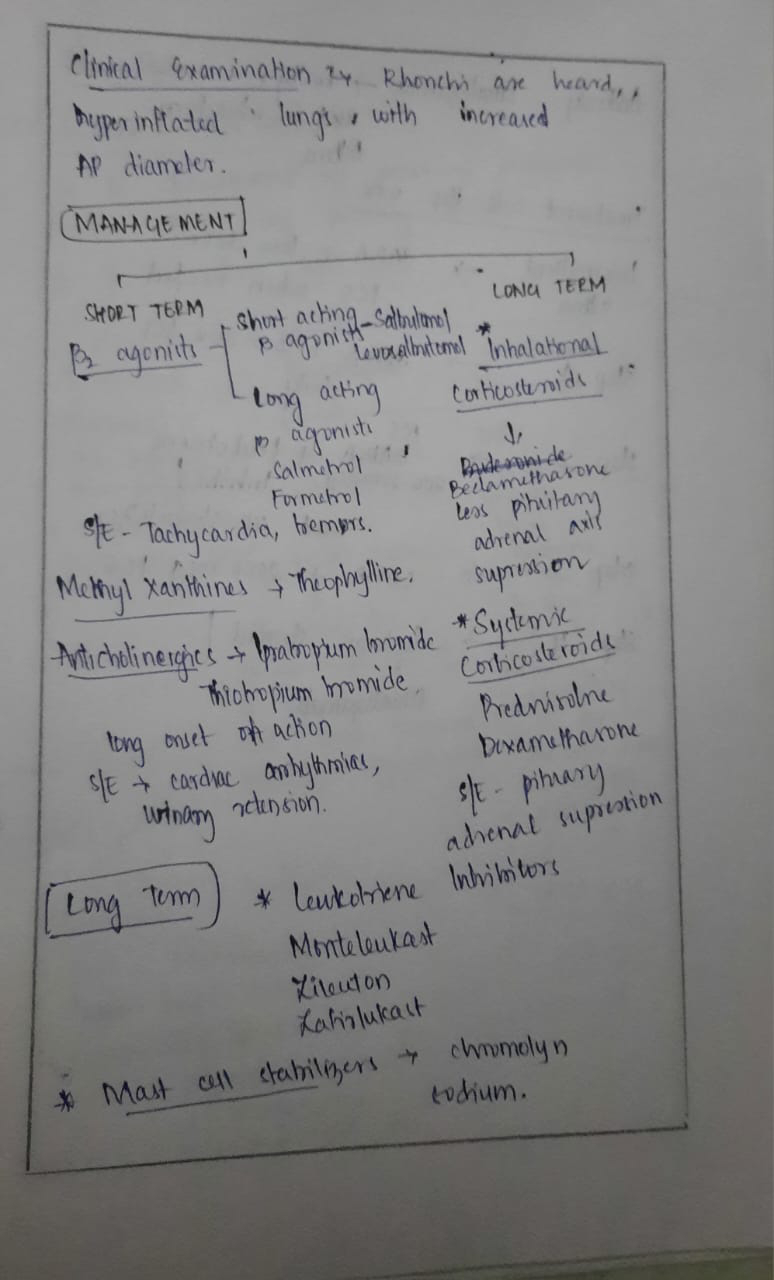 Clinical Examination Rhonchi are heard,,
hyper inflated lungs, with increased
AP diameter.
MANAGEMENT
SHORT TERM
B2 agonists
Short acting - Salbutamol
B agonists Levosalbutamol
Long acting
B agonists
Salmetrol
Formetrol
S/E - Tachycardia, tremors.
Methyl Xanthines → Theophylline.
Anticholinergics → Ipratropium bromide
Thiotropium bromide.
long onset of action
S/E → cardiac arrhythmias,
urinary retension.
LONG TERM
* Inhalational
Corticosteroids
↓
Budesonide
Beclamethasone
less pituitary
adrenal axis
supression
* Systemic
Corticosteroids
Prednisolne
Dexamethasone
S/E - pituary
adrenal supression
Long Term
* Leukotriene Inhibitors
Monteleukast
Zileuton
Zafirlukast
* Mast cell stabilizers → chromolyn
sodium.